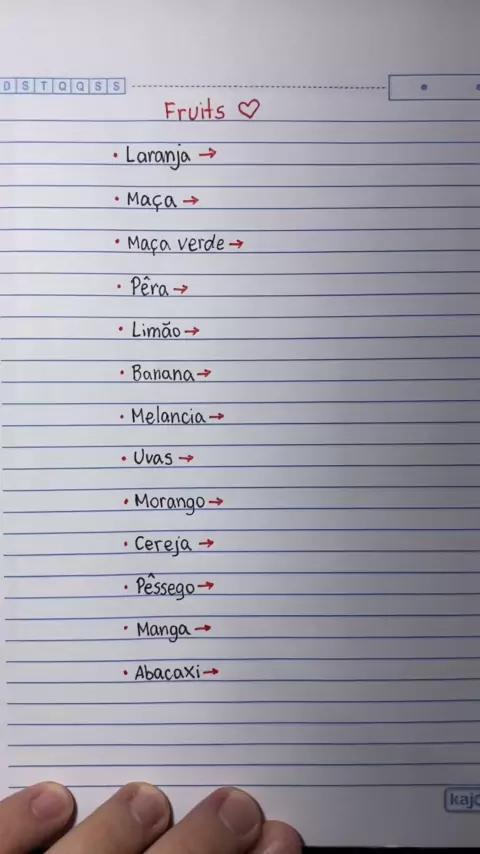 D S T Q Q S S
Fruits ♡
• Laranja →
• Maça →
• Maça verde →
• Pêra →
• Limão →
• Banana →
• Melancia →
• Uvas →
• Morango →
• Cereja →
• Pêssego →
• Manga →
• Abacaxi →